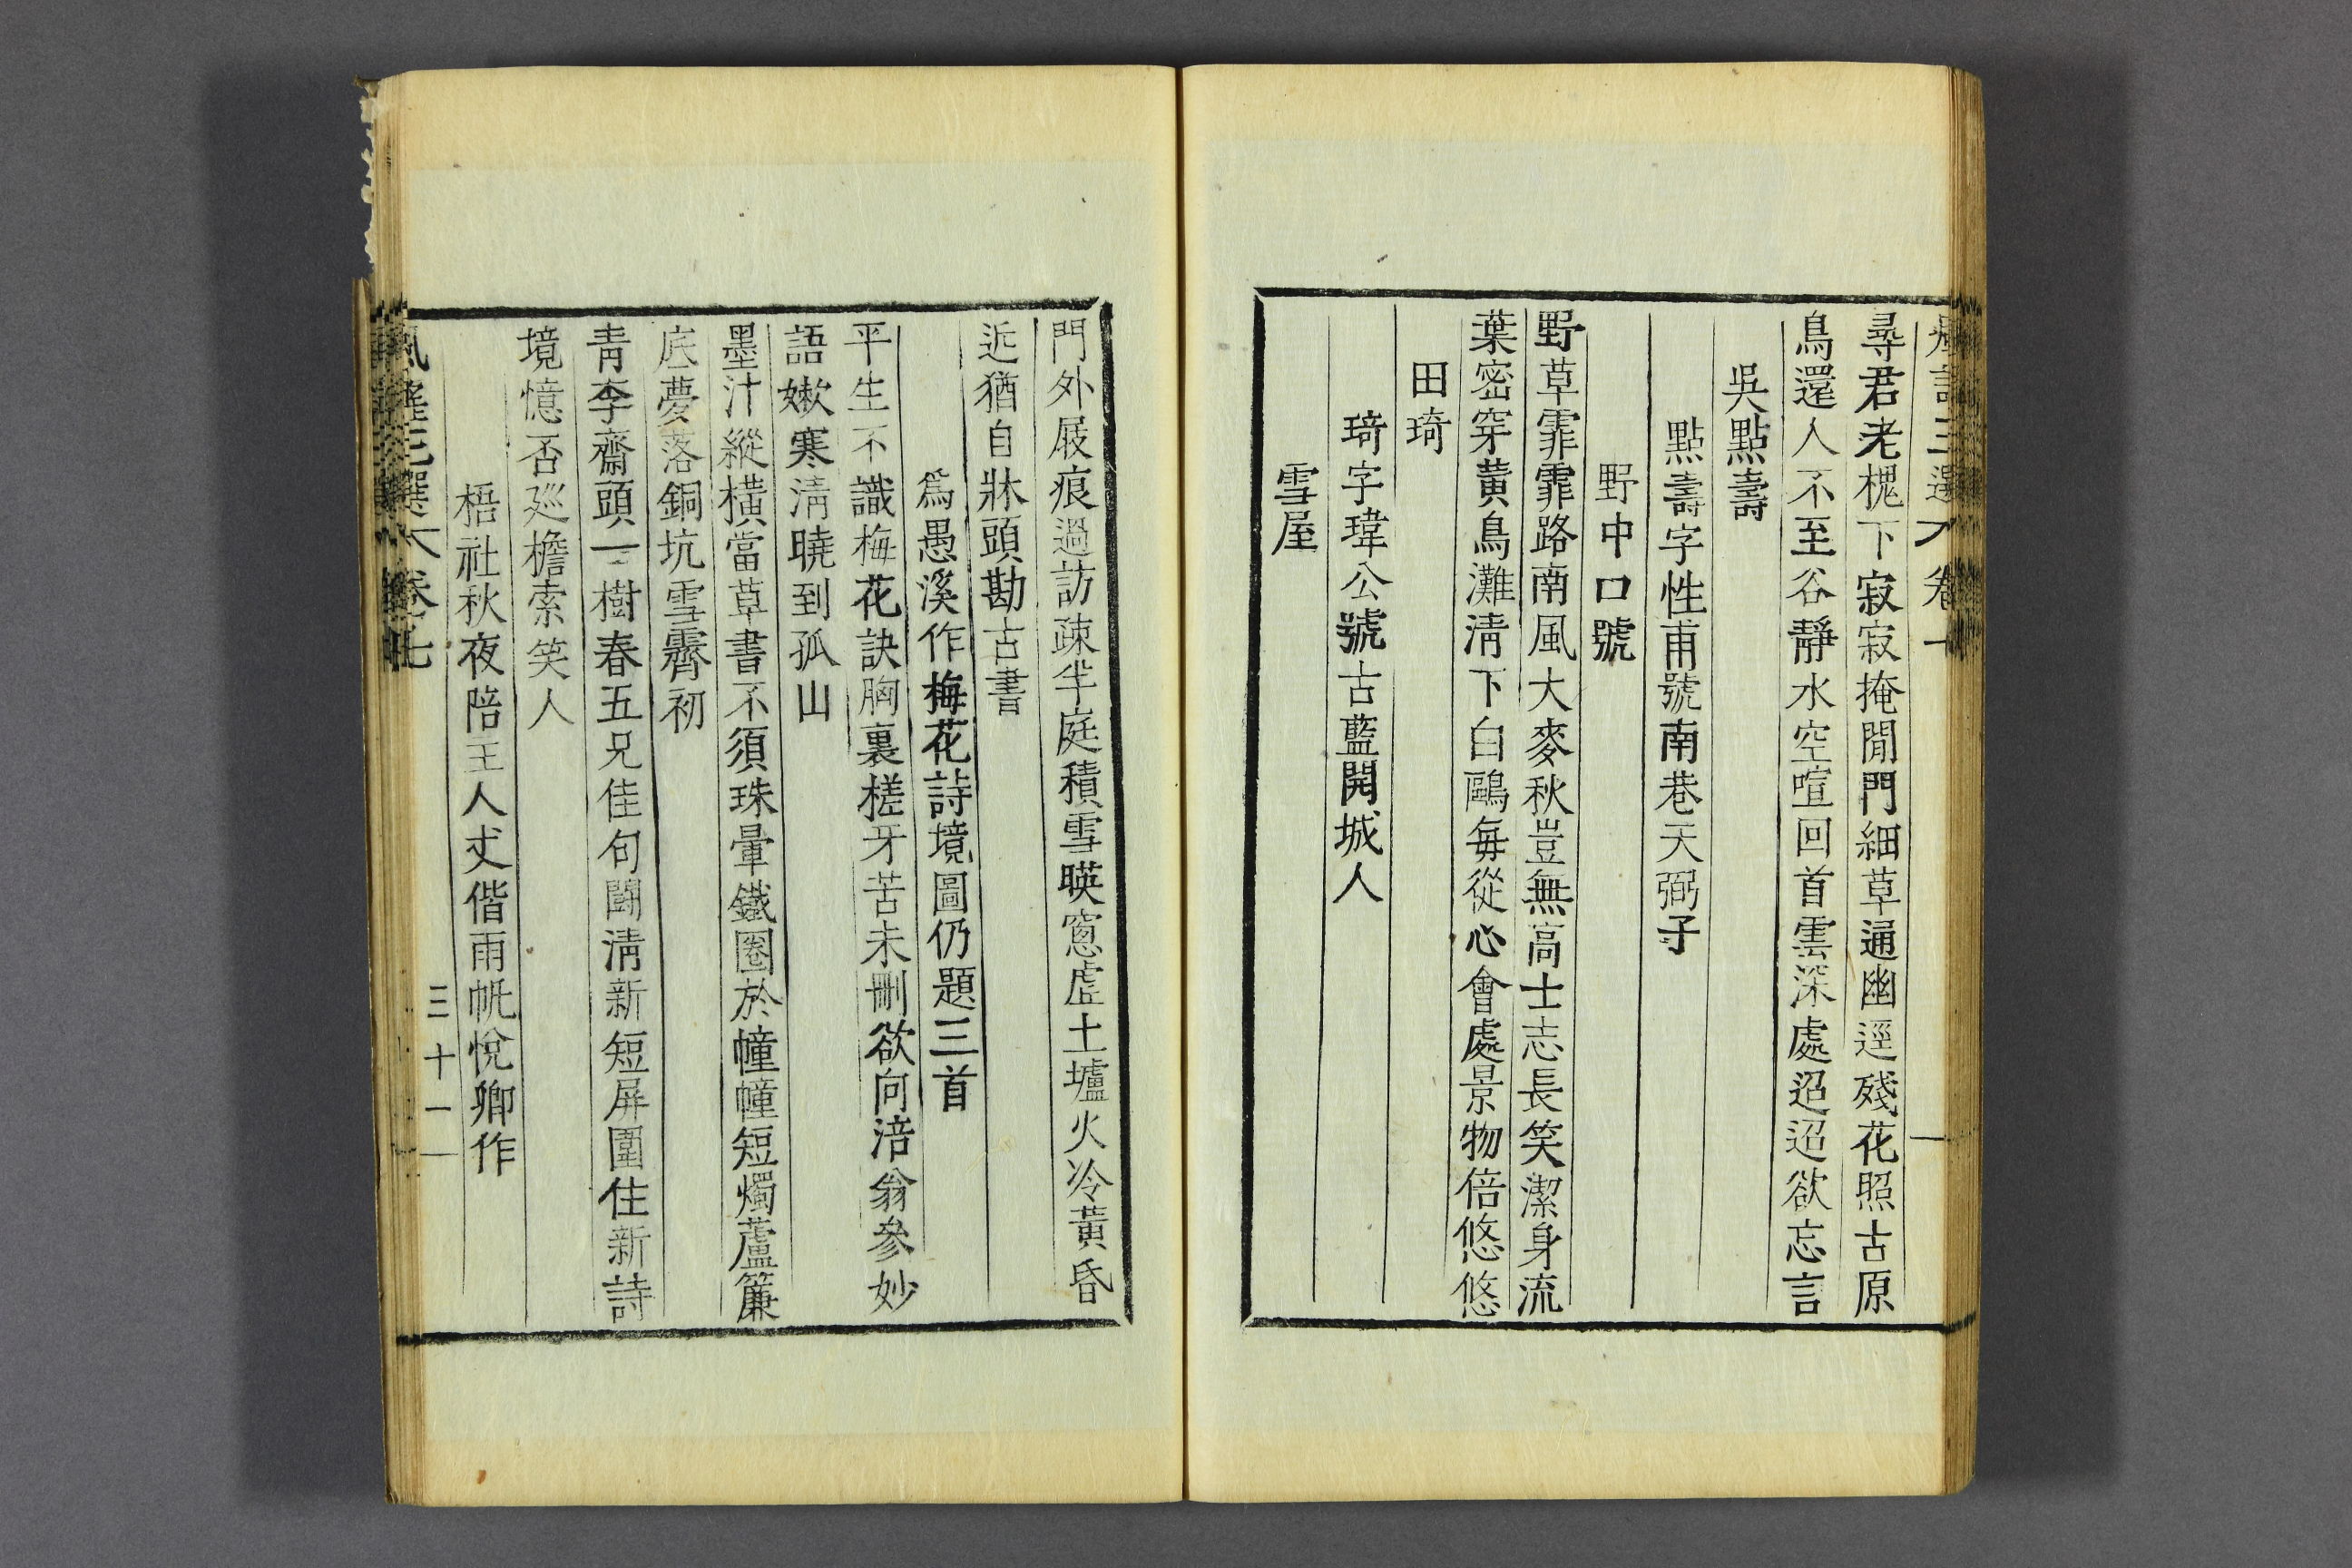 風謠三選 卷七
尋君老槐下寂寂掩閒門細草通幽逕殘花照古原
鳥還人不至谷靜水空喧回首雲深處迢迢欲忘言
吳點壽
點壽字性甫號南巷天弼子
野中口號
野草霏霏路南風大麥秋豈無高士志長笑潔身流
葉密穿黃鳥灘淸下白鷗每從心會處景物倍悠悠
田琦
琦字瑋公號古藍開城人
雪屋
門外屐痕過訪疎半庭積雪暎窓虛土壚火冷黃昏
近猶自牀頭勘古書
爲愚溪作梅花詩境圖仍題三首
平生不識梅花訣胸裏槎牙苦未刪欲向涪翁參妙
語嫩寒淸曉到孤山
墨汁縱橫當草書不須珠暈鐵圈於幢幢短燭蘆簾
底夢落銅坑雪霽初
靑李齋頭一樹春五兄佳句鬪淸新短屛圍住新詩
境憶否巡檐索笑人
梧社秋夜陪王人丈偕雨帆悅卿作
風謠三選 卷七 三十一